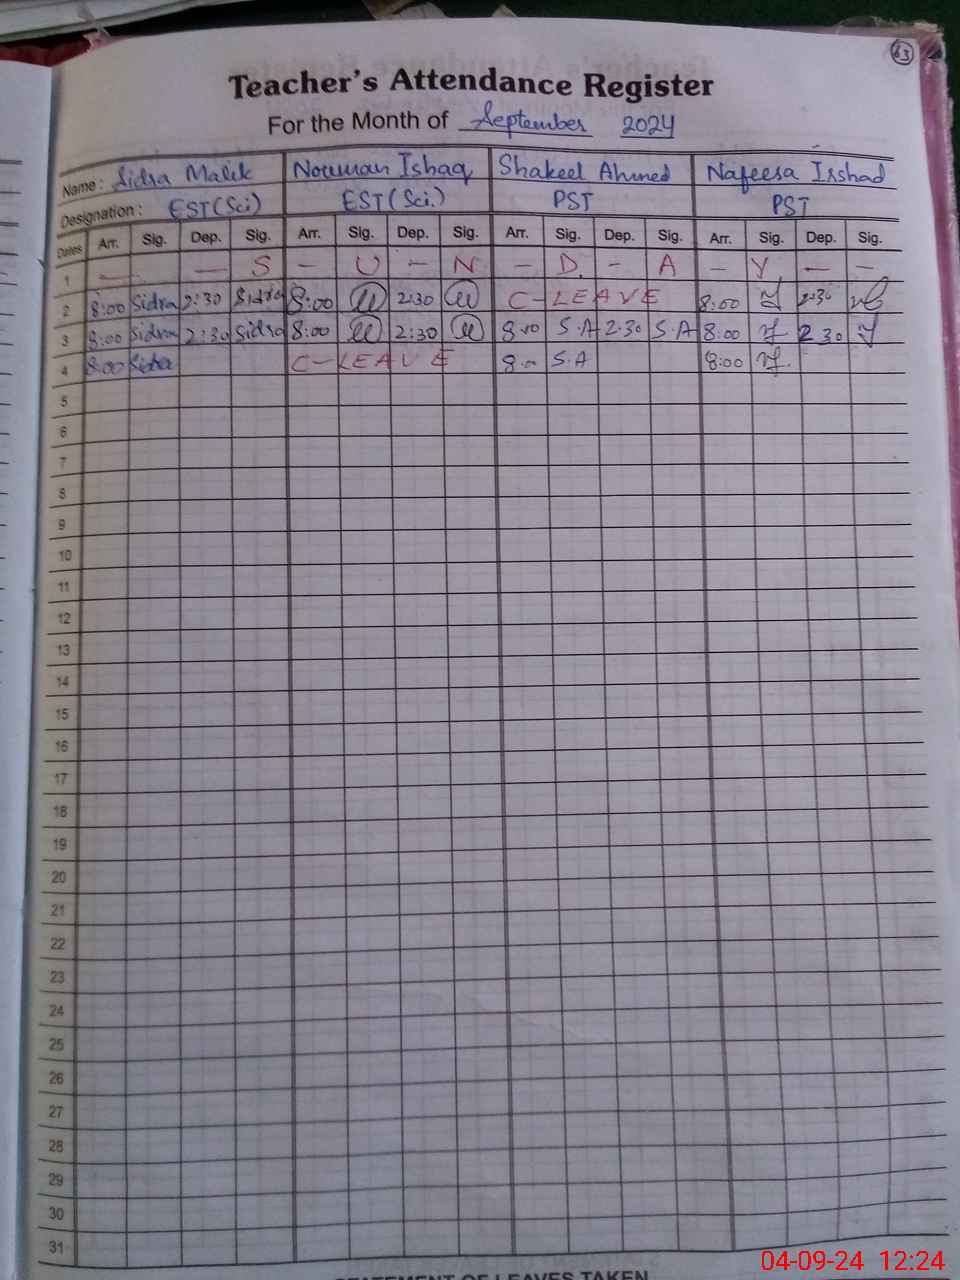 63
Teacher's Attendance Register
For the Month of September 2024
Name: Sidra Malik Nouman Ishaq Shakeel Ahmed Nafeesa Irshad
Designation: EST (Sci) EST (Sci.) PST PST
Dates Arr. Sig. Dep. Sig. Arr. Sig. Dep. Sig. Arr. Sig. Dep. Sig. Arr. Sig. Dep. Sig.
1 — — S - U - N - D - A - Y - -
2 8:00 Sidra 2:30 Sidra 8:00 2:30 C-LEAVE 8:00 2:30
3 8:00 Sidra 2:30 Sidra 8:00 2:30 8:00 S.A 2:30 S.A 8:00 2:30
4 8:00 Sidra C-LEAVE 8:00 S.A 8:00
5
6
7
8
9
10
11
12
13
14
15
16
17
18
19
20
21
22
23
24
25
26
27
28
29
30
31
STATEMENT OF LEAVES TAKEN
04-09-24 12:24